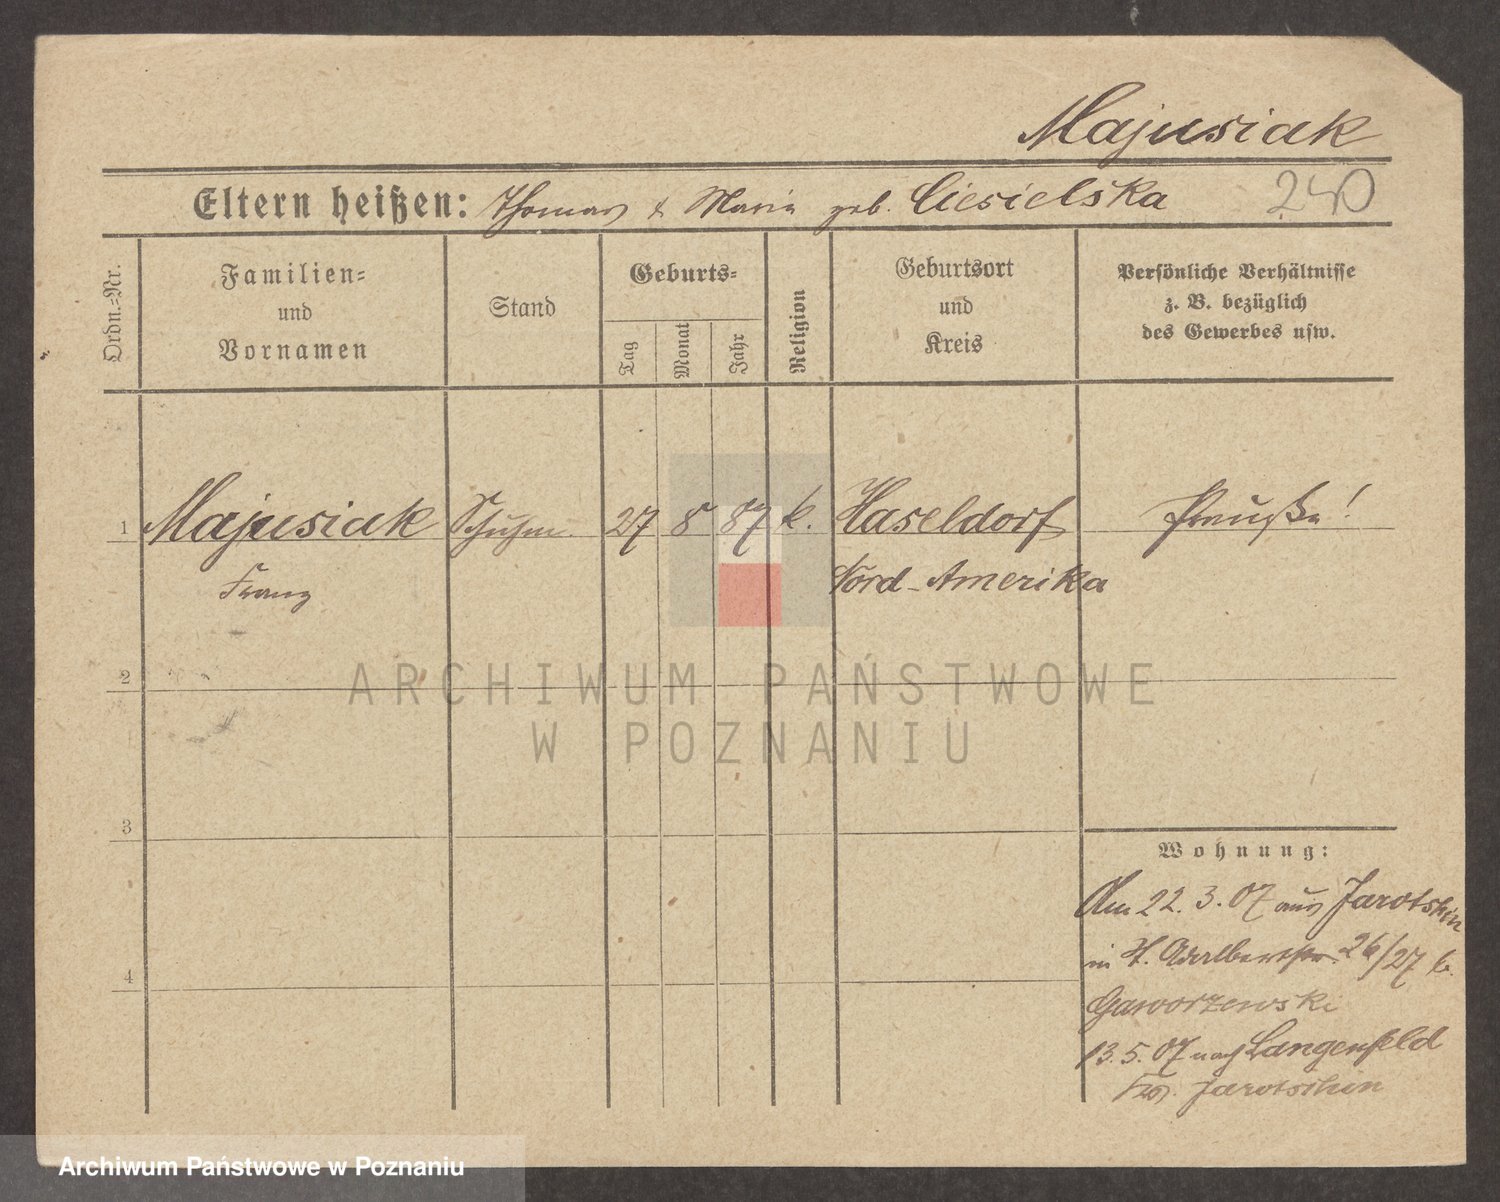 Majusiak
Eltern heißen: Thomas & Maria geb. Ciesielska 240
Ordn.=Nr.
Familien=
und
Vornamen
Stand
Geburts=
Tag
Monat
Jahr
Religion
Geburtsort
und
Kreis
Persönliche Verhältnisse
z. B. bezüglich
des Gewerbes usw.
1 Majusiak Schuhm. 27 8 87 k. Haseldorf Preuße!
Franz Nord-Amerika
2
ARCHIWUM PAŃSTWOWE
W POZNANIU
3
Wohnung:
Am 22. 3. 07 aus Jarotschin
in H. Adalbertstr. 26/27 b.
4
Gaworzewski
13. 5. 07 nach Langenfeld
Jarotschin
Archiwum Państwowe w Poznaniu